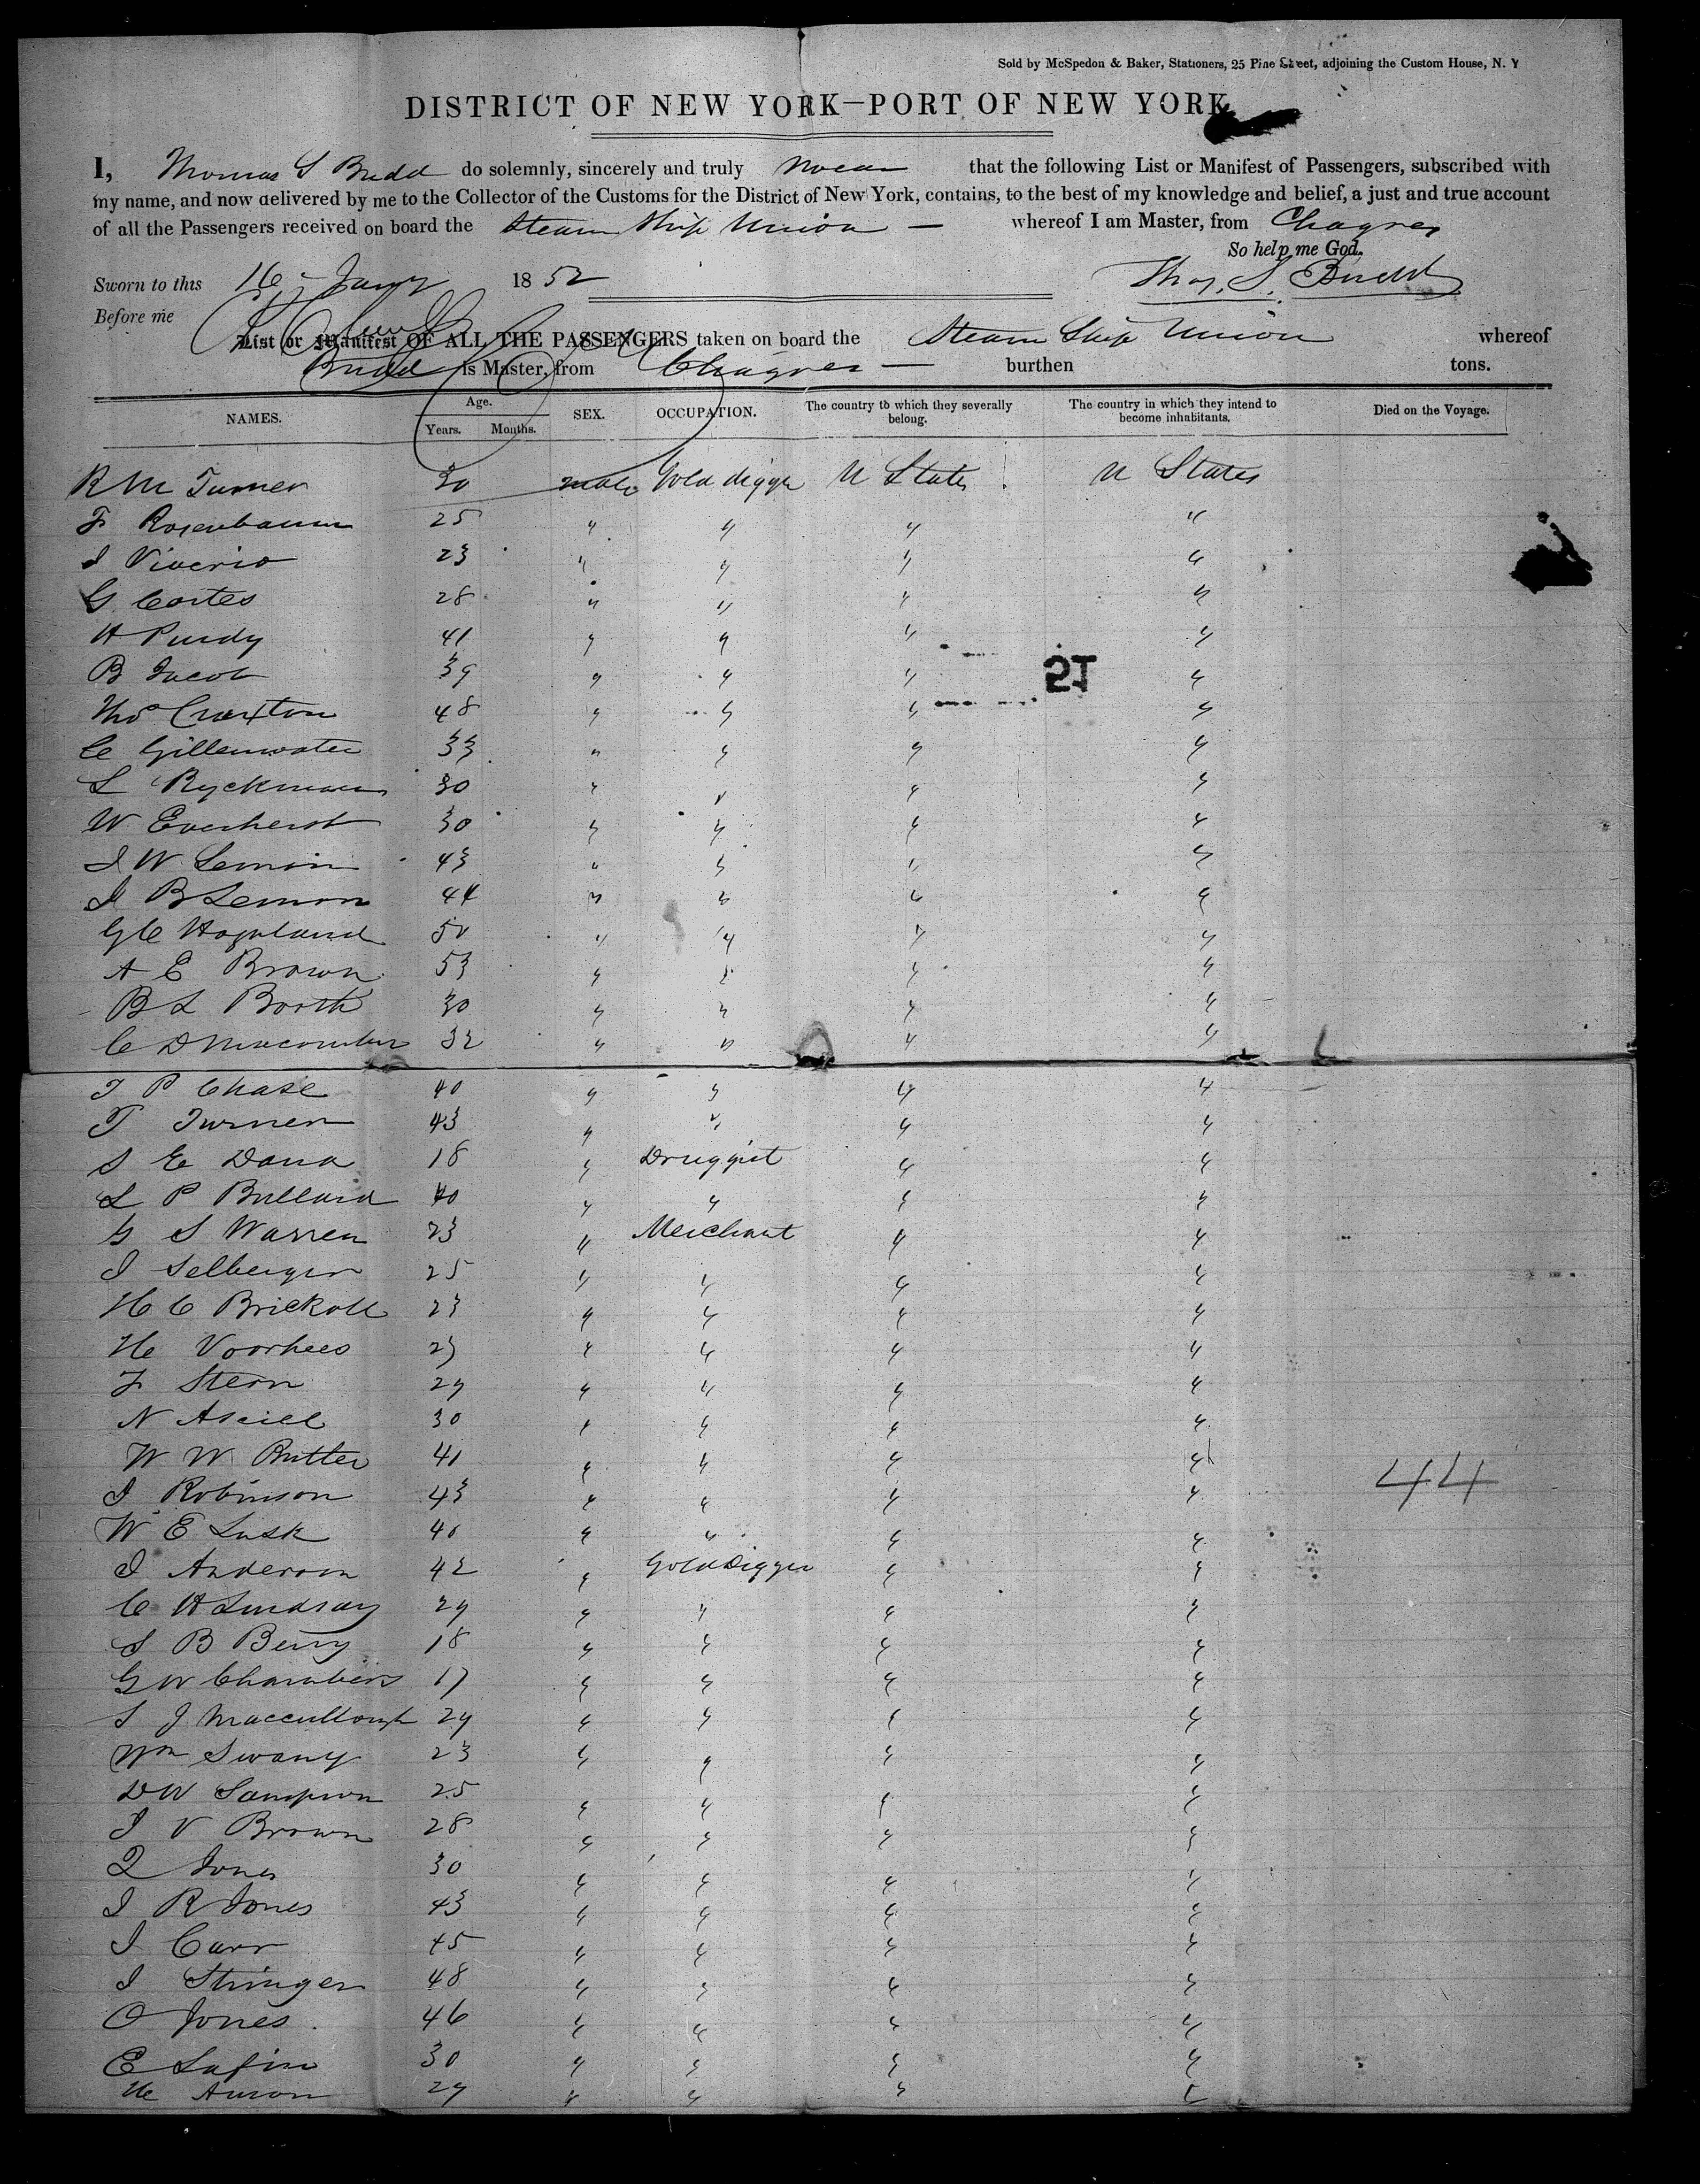 Sold by McSpedon & Baker, Stationers, 25 Pine Street, adjoining the Custom House, N. Y
DISTRICT OF NEW YORK—PORT OF NEW YORK
I, Thomas S Budd do solemnly, sincerely and truly swear that the following List or Manifest of Passengers, subscribed with
my name, and now delivered by me to the Collector of the Customs for the District of New York, contains, to the best of my knowledge and belief, a just and true account
of all the Passengers received on board the Steam Ship Union — whereof I am Master, from Chagres
So help me God.
Sworn to this 16 – Jany 1852 Thos. S. Budd
Before me
List or Manifest OF ALL THE PASSENGERS taken on board the Steam Ship Union whereof
Budd is Master, from Chagres — burthen tons.
NAMES. Age. Years. Months. SEX. OCCUPATION. The country to which they severally belong. The country in which they intend to become inhabitants. Died on the Voyage.
R M Turner 30 male Gold digger U States U States
F Rosenbaum 25 " " " "
J Viverio 23 " " " "
G Cortes 28 " " " "
H Purdy 41 " " " "
B Jacob 39 " " " "
ST
Thos Craxton 48 " " " "
C Gillenwater 33 " " " "
L Ryckman 30 " " " "
W Everherst 30 " " " "
J W Lemon 43 " " " "
J B Lemon 44 " " " "
G C Hogeland 50 " " " "
A E Brown 53 " " " "
B L Booth 30 " " " "
C D Macomber 32 " " " "
T P Chase 40 " " " "
T Turner 43 " " " "
S E Dana 18 " Druggist " "
L P Bullard 40 " " " "
G S Warren 23 " Merchant " "
J Selberger 25 " " " "
H C Brickoll 23 " " " "
H Voorhees 23 " " " "
F Stern 29 " " " "
N Asciel 30 " " " "
W W Butter 41 " " " "
44
J Robinson 43 " " " "
W E Lusk 40 " " " "
J Anderson 42 " Gold Digger " "
C H Lindsay 29 " " " "
S B Berry 18 " " " "
G W Chambers 17 " " " "
S J Maccullough 29 " " " "
Wm Swany 23 " " " "
D W Sampson 25 " " " "
J V Brown 28 " " " "
Q Jones 30 " " " "
J R Jones 43 " " " "
J Carr 45 " " " "
J Stringer 48 " " " "
O Jones 46 " " " "
E Lafin 30 " " " "
H Auson 29 " " " "